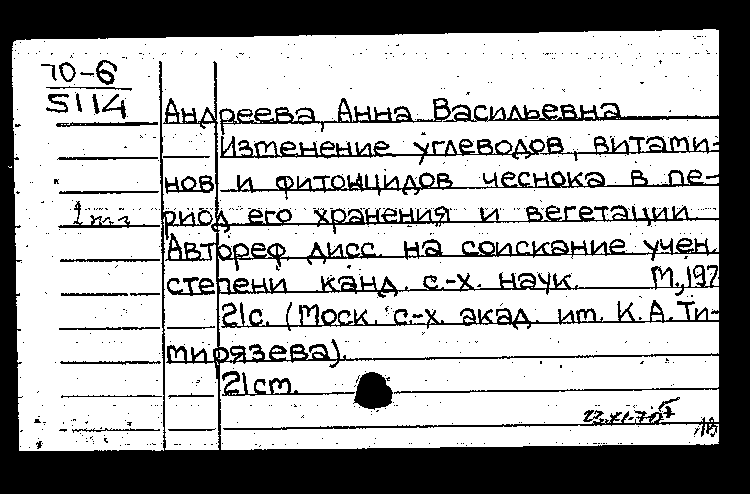 70-6
5114
Андреева, Анна Васильевна
Изменение углеводов, витами-
нов и фитонцидов чеснока в пе-
2 тг риод его хранения и вегетации
Автореф. дисс. на соискание учен.
степени канд. с.-х. наук. М.,197
21с. (Моск. с.-х. акад. им. К.А. Ти-
мирязева).
21см.